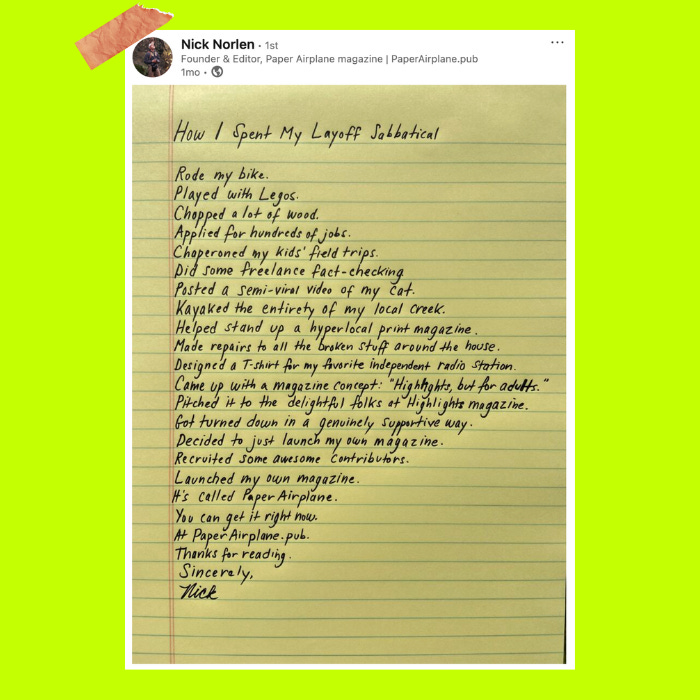 Nick Norlen · 1st
Founder & Editor, Paper Airplane magazine | PaperAirplane.pub
1mo ·
How I Spent My Layoff Sabbatical
Rode my bike.
Played with Legos.
Chopped a lot of wood.
Applied for hundreds of jobs.
Chaperoned my kids' field trips.
Did some freelance fact-checking
Posted a semi-viral video of my cat.
Kayaked the entirety of my local creek.
Helped stand up a hyperlocal print magazine.
Made repairs to all the broken stuff around the house.
Designed a T-shirt for my favorite independent radio station.
Came up with a magazine concept: "Highlights, but for adults."
Pitched it to the delightful folks at Highlights magazine.
Got turned down in a genuinely supportive way.
Decided to just launch my own magazine.
Recruited some awesome contributors.
Launched my own magazine.
It's called Paper Airplane.
You can get it right now.
At PaperAirplane.pub.
Thanks for reading.
Sincerely,
Nick